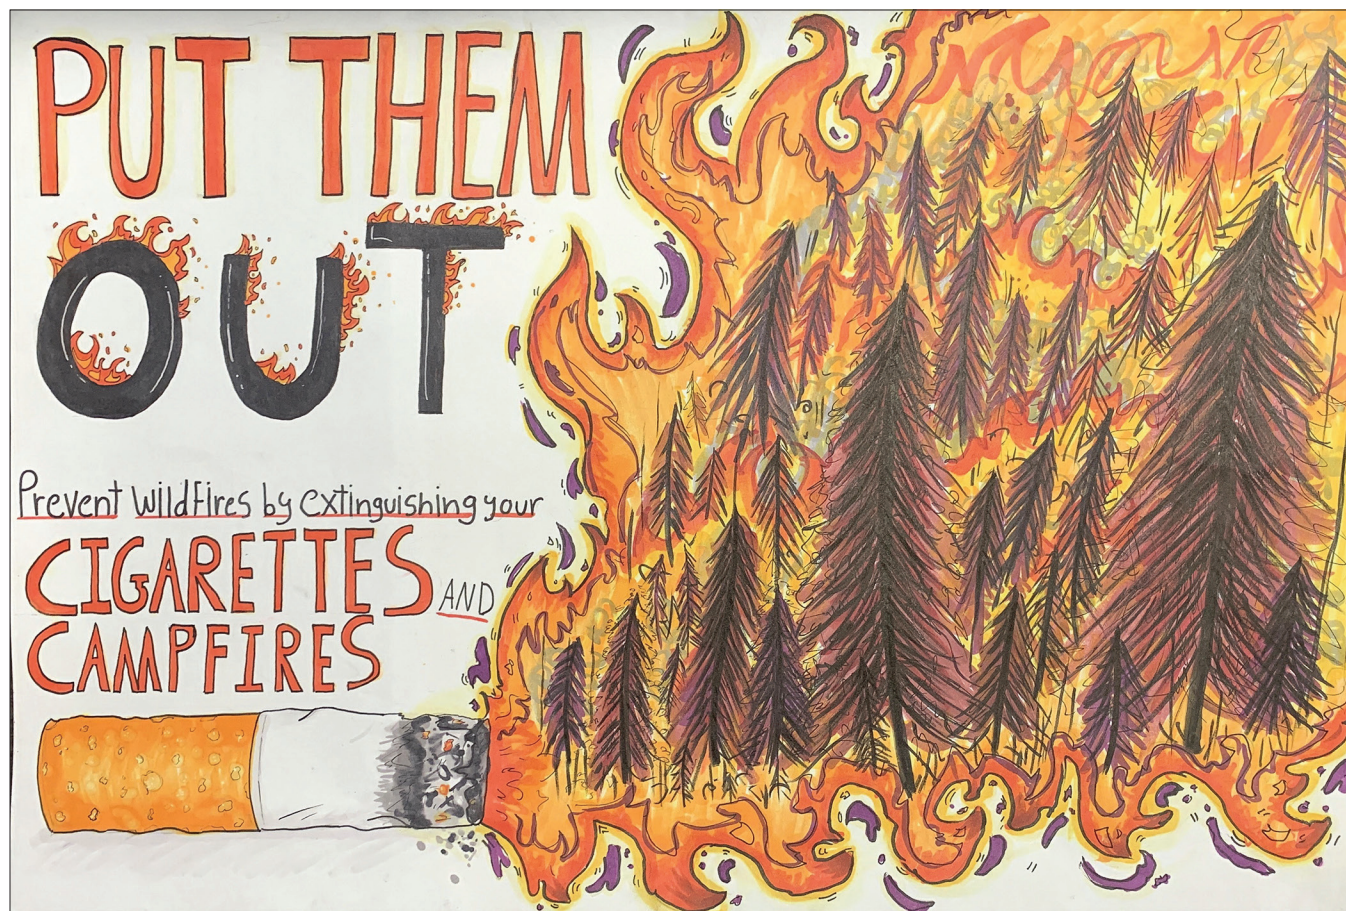 PUT THEM
OUT
Prevent Wildfires by extinguishing your
CIGARETTES AND
CAMPFIRES